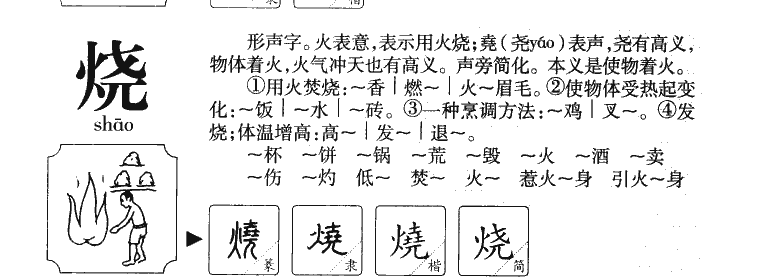 隶
楷
烧
shāo
形声字。火表意,表示用火烧;堯(尧yáo)表声,尧有高义,
物体着火,火气冲天也有高义。声旁简化。本义是使物着火。
①用火焚烧:~香|燃~|火~眉毛。②使物体受热起变
化:~饭|~水|~砖。③一种烹调方法:~鸡|叉~。④发
烧;体温增高:高~|发~|退~。
~杯 ~饼 ~锅 ~荒 ~毁 ~火 ~酒 ~卖
~伤 ~灼 低~ 焚~ 火~ 惹火~身 引火~身
燒 篆
燒 隶
燒 楷
烧 简